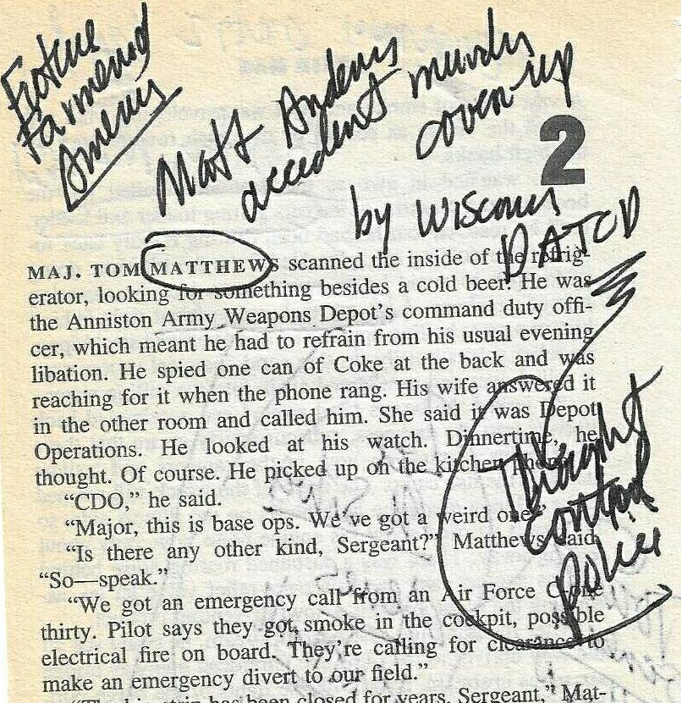 Matt Anders
accedent murder
cover-up
2
by Wiscons
DATCP
MAJ. TOM MATTHEWS scanned the inside of the refrig-
erator, looking for something besides a cold beer. He was
the Anniston Army Weapons Depot's command duty offi-
cer, which meant he had to refrain from his usual evening
libation. He spied one can of Coke at the back and was
reaching for it when the phone rang. His wife answered it
in the other room and called him. She said it was Depot
Operations. He looked at his watch. Dinnertime, he
thought. Of course. He picked up on the kitchen phone.
"CDO," he said.
"Major, this is base ops. We've got a weird one."
"Is there any other kind, Sergeant?" Matthews said.
"So—speak."
"We got an emergency call from an Air Force C-one
thirty. Pilot says they got smoke in the cockpit, possible
electrical fire on board. They're calling for clearance to
make an emergency divert to our field."
strip has been closed for years, Sergeant," Mat-
Thought
control
police